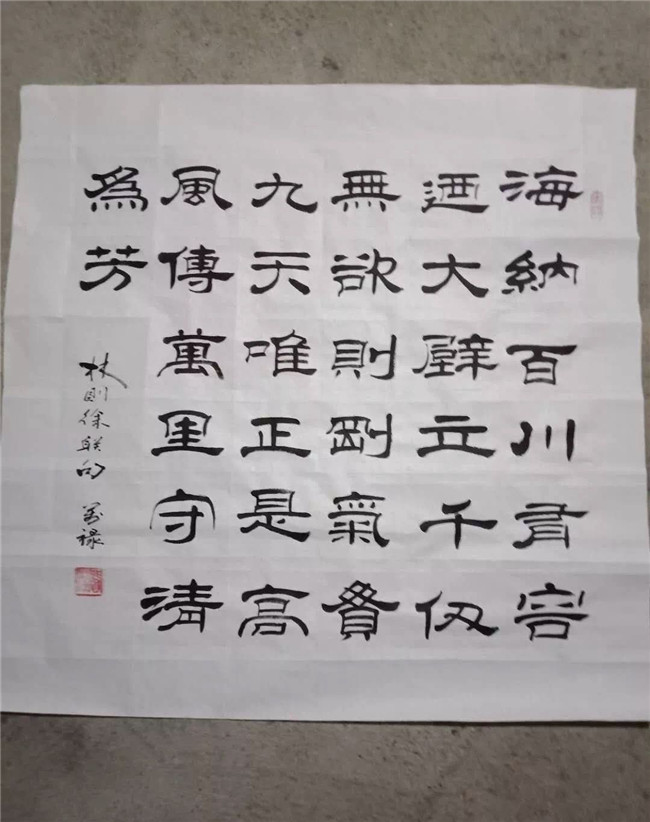 海納百川有容
迺大壁立千仞
無欲則剛氣貫
九天唯正是高
風傳萬里守清
爲芳
林則徐联句